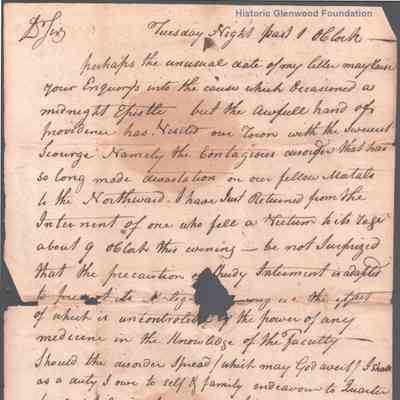 Historic Glenwood Foundation
Dr Sir,
Tuesday Night past 1 OClock —
perhaps the unusual date of my letter may cause
your Enquorys into the cause which Occasioned a
midnight Epistle but the awfull hand of
providence has Visited our Town with the Severest
Scourge Namely the Contageous disorder that has
so long made devastation on our fellow Motals
to the Northward. I have Just Returned from the
Interment of one who fell a Victum to its Rage
about 9 OClock this evening — be not Surprized
that the precaution of Speedy Interment is adopted
to prevent the the effect
of which is uncontrolled by the power of any
medicine in the Knowledge of the Faculty —
Should the disorder Spread (which may God avert) I shall
as a duty I owe to self & family endeavour to Quarter